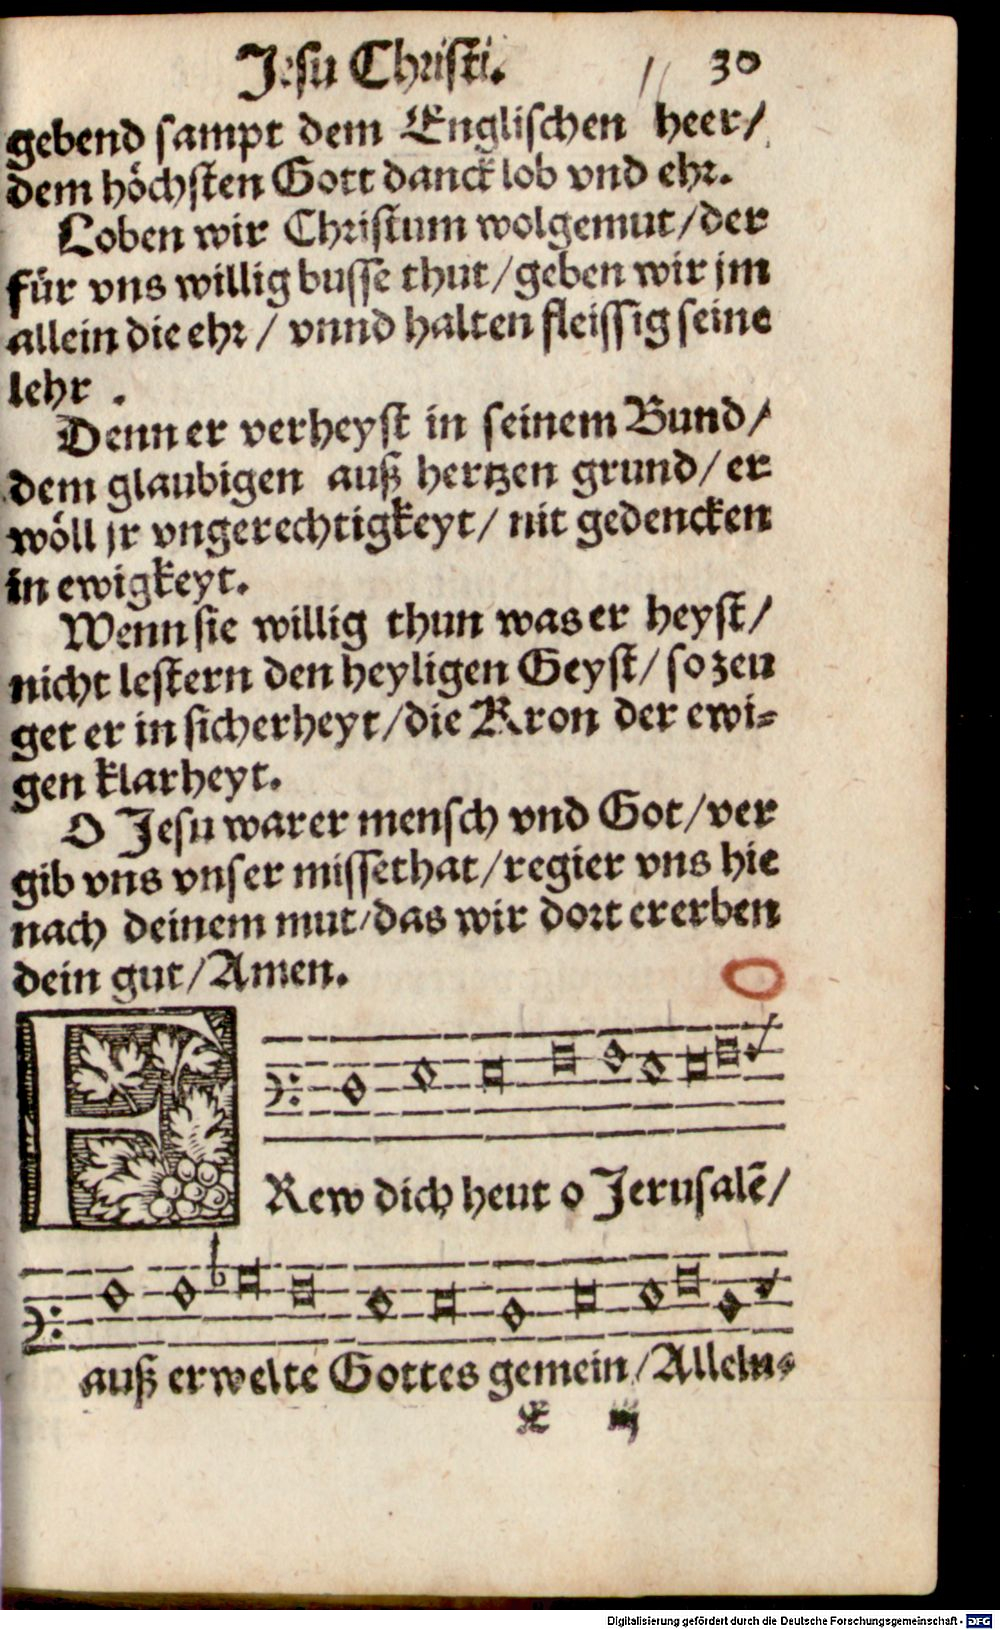 Jesu Christi. 30
gebend sampt dem Englischen heer/
dem höchsten Gott danck lob vnd ehr.
Loben wir Christum wolgemut/der
für vns willig busse thut/geben wir jm
allein die ehr/ vnnd halten fleissig seine
lehr .
Denn er verheyst in seinem Bund/
dem glaubigen auß hertzen grund/ er
wöll jr vngerechtigkeyt/ nit gedencken
in ewigkeyt.
Wenn sie willig thun was er heyst/
nicht lestern den heyligen Geyst/ so zeu
get er in sicherheyt/die Kron der ewi-
gen klarheyt.
O Jesu warer mensch vnd Got/ver
gib vns vnser missethat/regier vns hie
nach deinem mut/das wir dort ererben
dein gut/Amen.
FRew dich heut o Jerusalē/
auß erwelte Gottes gemein/Allelu-
E iij
Digitalisierung gefördert durch die Deutsche Forschungsgemeinschaft - DFG